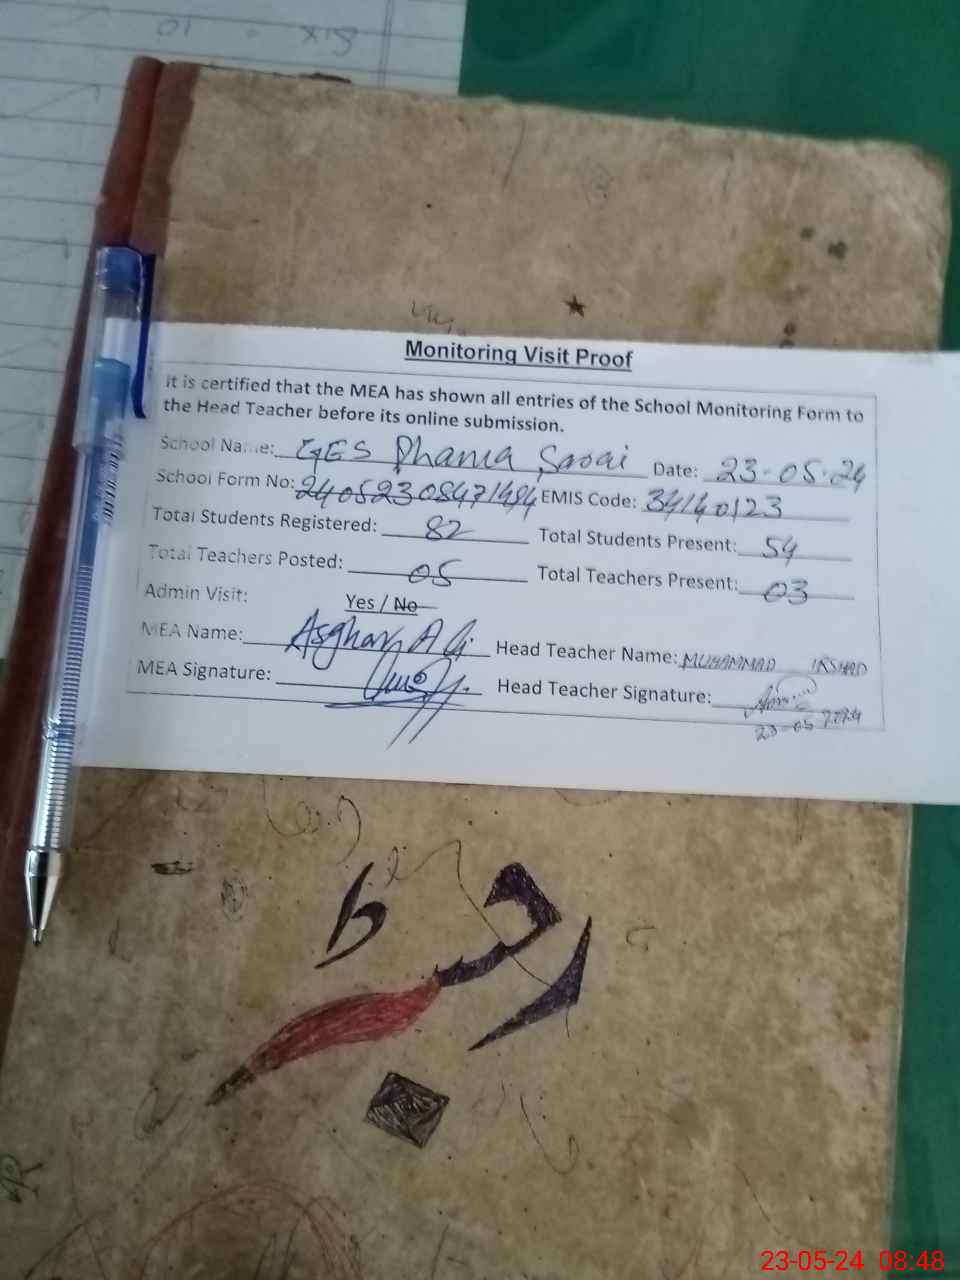 Monitoring Visit Proof
It is certified that the MEA has shown all entries of the School Monitoring Form to
the Head Teacher before its online submission.
School Name: GES Dhania Sarai Date: 23-05-24
School Form No: 24052308471494 EMIS Code: 34140123
Total Students Registered: 82 Total Students Present: 54
Total Teachers Posted: 05 Total Teachers Present: 03
Admin Visit: Yes / No
MEA Name: Asghar Ali Head Teacher Name: MUHAMMAD IRSHAD
MEA Signature: Head Teacher Signature:
23-05-2024
رجسٹر
23-05-24 08:48